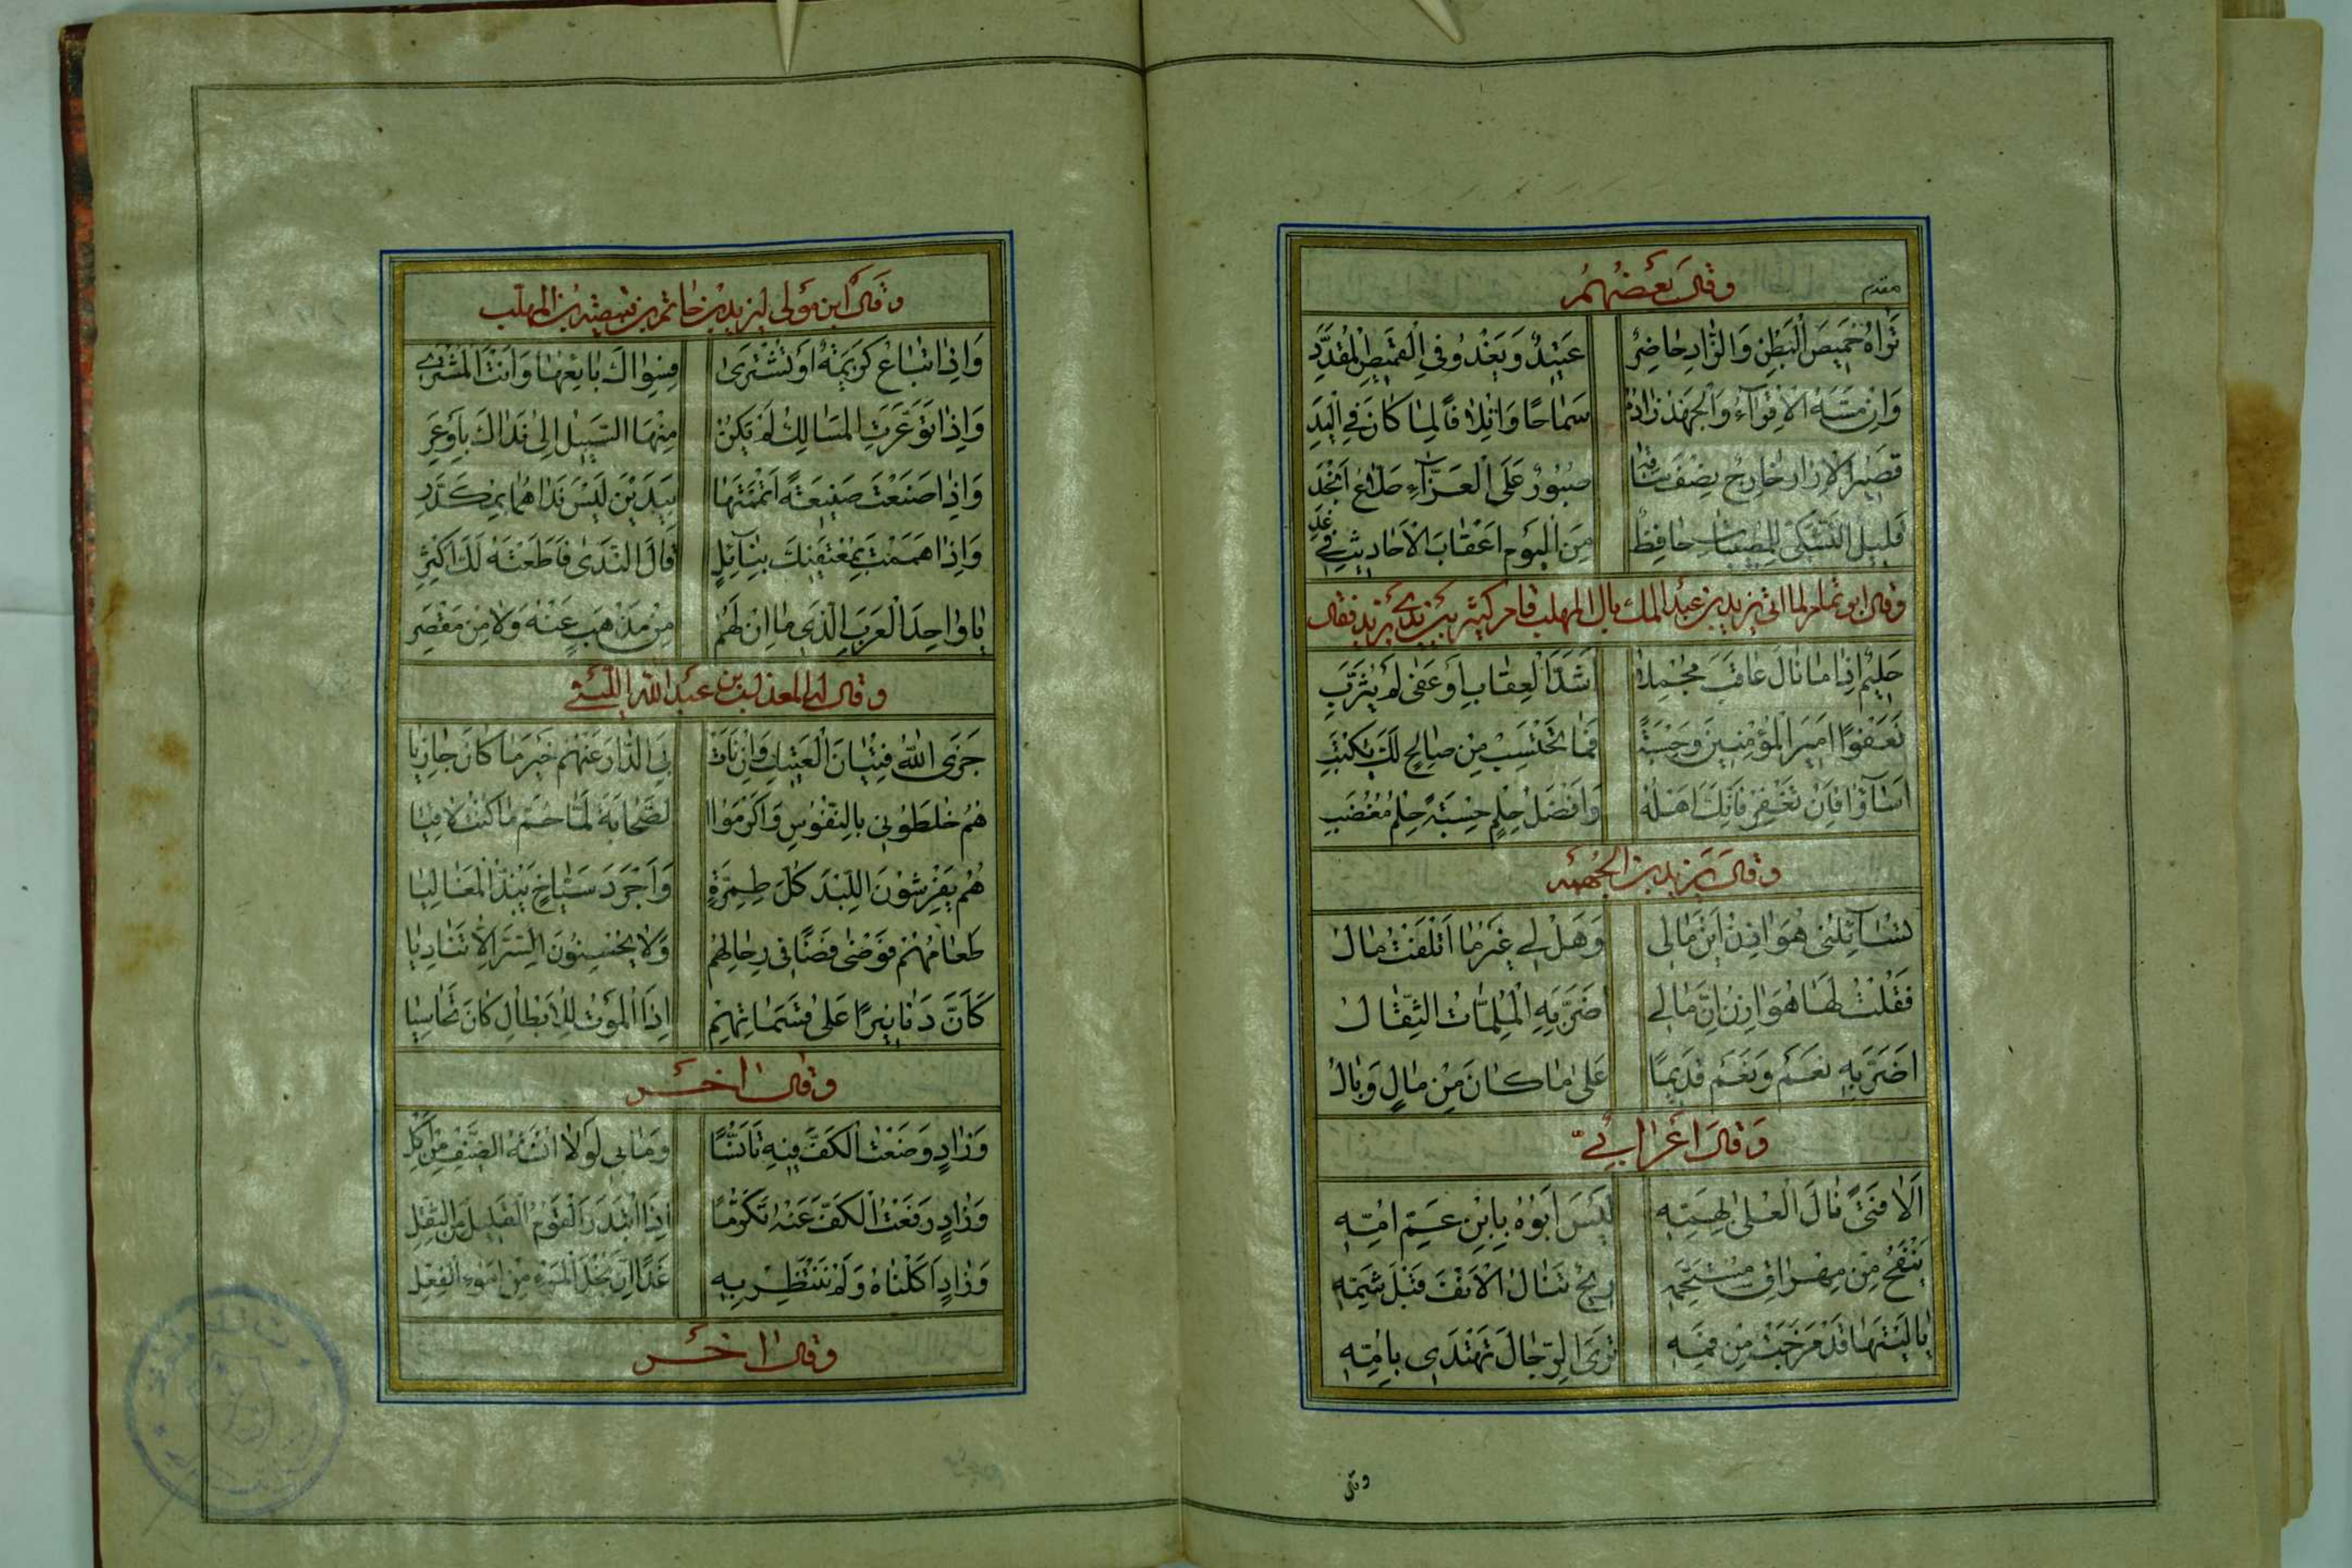 وقال بعضهم
مقدم
تراه خَمِيصَ الْبَطْنِ وَالزَّادِ حَاضِرٌ عَتِيدٌ وَيَغْدُو فِي الْقَمِيصِ الْمُقَدَّدِ
وَاِنْ مَسَّهُ الْاِقْوَآءُ وَالْجَهْدُ زَادَهُ سَمَاحًا وَاتْلَافًا لِمَا كَانَ فِي الْيَدِ
قَصِيرُ الْاِزَارِ خَارِجٌ نِصْفُ سَاقِهِ صَبُورٌ عَلَى الْعَزَّآءِ طَلَّاعُ اَنْجُدِ
قَلِيلُ التَّشَكِّي لِلْمُصِيبَاتِ حَافِظٌ مِنَ الْيَوْمِ اَعْقَابَ الْاَحَادِيثِ فِي غَدِ
وقال ابو تمام لما اتى يزيد بن عبد الملك بال المهلب قام كثير بين يدي يزيد فقال
حَلِيمٌ اِذَا مَا نَالَ عَاقَبَ مُجْمِلًا اَشَدَّ الْعِقَابِ اَوْ عَفَى لَمْ يُثَرِّبِ
فَعَفْوًا اَمِيرَ الْمُؤْمِنِينَ وَحِسْبَةً فَمَا تَحْتَسِبْ مِنْ صَالِحٍ لَكَ يُكْتَبِ
اَسَآؤُا فَاِنْ تَغْفِرْ فَاِنَّكَ اَهْلُهُ وَاَفْضَلُ حِلْمٍ حِسْبَةً حِلْمُ مُغْضَبِ
وقال يزيد بن الجهم
تُسَآئِلُنِي هَوَازِنُ اَيْنَ مَالِي وَهَلْ لِي غَيْرَمَا اَتْلَفْتُ مَالُ
فَقُلْتُ لَهَا هَوَازِنُ اِنَّ مَالِي اَضَرَّ بِهِ الْمُلِمَّاتُ الثِّقَالُ
اَضَرَّ بِهِ نَعَمْ وَنَعَمْ قَدِيمًا عَلَى مَا كَانَ مِنْ مَالٍ وَبَالُ
وَقَالَ اَعْرَابِيٌّ
اَلَا فَتًى نَالَ الْعُلَى بِهِمِّهِ لَيْسَ اَبُوهُ بِابْنِ عَمِّ اُمِّهِ
رِيحٌ تَنَالُ الْاَنْفَ قَبْلَ شَمِّهِ
يَا لَيْتَهَا قَدْ خَرَجَتْ مِنْ فَمِّهِ تَرَى الرِّجَالَ تَهْتَدِي بِاَمِّهِ
وقال
وقال ابن مولى ليزيد بن حاتم بن قبيصة بن المهلب
وَاِذَا تُبَاعُ كَرِيمَةٌ اَوْ تُشْتَرَى فَسِوَاكَ بَائِعُهَا وَاَنْتَ الْمُشْتَرِي
وَاِذَا تَوَعَّرَتِ الْمَسَالِكُ لَمْ تَكُنْ مِنْهَا السَّبِيلُ اِلَى نَدَاكَ بِاَوْعَرِ
وَاِذَا صَنَعْتَ صَنِيعَةً اَتْمَمْتَهَا بِيَدَيْنِ لَيْسَ نَدَاهُمَا بِمُكَدَّرِ
وَاِذَا هَمَمْتَ بِمُعْتَفِيكَ بِنَآئِلٍ قَالَ النَّدَى فَاَطَعْتَهُ لَكَ اَكْثِرِ
يَا وَاحِدَ الْعَرَبِ الَّذِي مَا اِنْ لَهُمْ مِنْ مَذْهَبٍ عَنْهُ وَلَا مِنْ مَقْصَرِ
وقال المعذل بن عبد الله الليثي
جَزَى اللهُ فِتْيَانَ الْعَتِيكِ وَاِنْ نَاَتْ بِيَ الدَّارُ عَنْهُمْ خَيْرَ مَا كَانَ جَازِيَا
هُمُ خَلَطُونِي بِالنُّفُوسِ وَاَكْرَمُوا الصَّحَابَةَ لَمَّا حُمَّ مَا كُنْتُ لَاقِيَا
هُمُ يَفْرِشُونَ اللِّبْدَ كُلَّ طِمِرَّةٍ وَاَجْرَدَ سَبَّاحٍ يَبُذُّ الْمُغَالِيَا
طَعَامُهُمُ فَوْضَى فَضًا فِي رِحَالِهِمْ وَلَا يُحْسِنُونَ السِّرَّ اِلَّا تَنَادِيَا
كَاَنَّ دَنَانِيرًا عَلَى قَسَمَاتِهِمْ اِذَا الْمَوْتُ لِلْاَبْطَالِ كَانَ تَحَاسِيَا
وقال اخر
وَزَادٍ وَضَعْتُ الْكَفَّ فِيهِ تَاَنُّسًا وَمَا بِي لَوْلَا اُنْسَةُ الضَّيْفِ مِنْ اَكْلِ
وَزَادٍ رَفَعْتُ الْكَفَّ عَنْهُ تَكَرُّمًا اِذَا ابْتَدَرَ الْقَوْمُ الْقَلِيلَ مِنَ الثُّفْلِ
وَزَادٍ اَكَلْنَاهُ وَلَمْ نَنْتَظِرْ بِهِ غَدًا اِنَّ بُخْلَ الْمَرْءِ مِنْ اَسْوَءِ الْفِعْلِ
وقال اخر